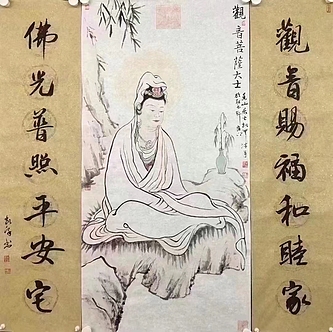 觀音賜福和睦家
觀音菩薩大士
佛光普照平安宅